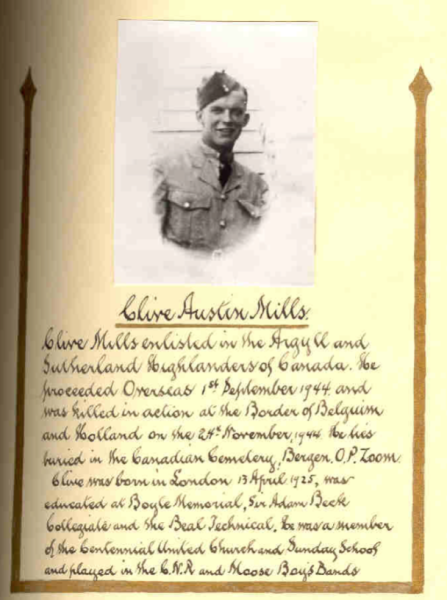 Clive Austin Mills.
Clive Mills enlisted in the Argyll and
Sutherland Highlanders of Canada. He
proceeded Overseas 1st September 1944 and
was killed in action at the Border of Belguim
and Holland on the 2nd November, 1944. He lies
buried in the Canadian Cemetery, Bergen, O.P. Zoom.
Clive was born in London 13 April 1925, was
educated at Boyle Memorial, Sir Adam Beck
Collegiate and the Beal Technical. He was a member
of the Centennial United Church and Sunday School
and played in the C.N.R and Moose Boy's Bands